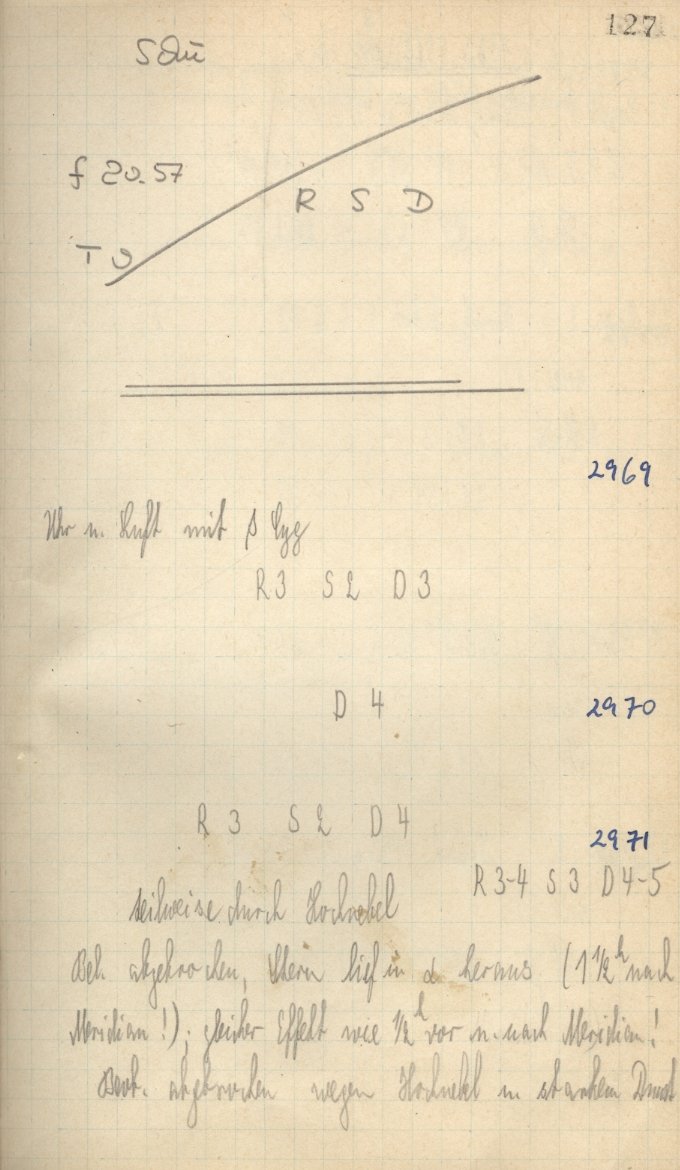 127
Sdü
f 20.57
R S D
T
2969
Uhr u. Luft mit β Cyg
R3 S2 D3
D 4
2970
R 3 S2 D4
2971
R3-4 S3 D4-5
teilweise durch Hochnebel
Bel. abgebrochen, Stern lief in α heraus (1 1/2 h nach
Meridian!); gleicher Effekt wie 1/2 h vor u. nach Meridian!
Beob. abgebrochen wegen Hochnebel u. starkem Dunst